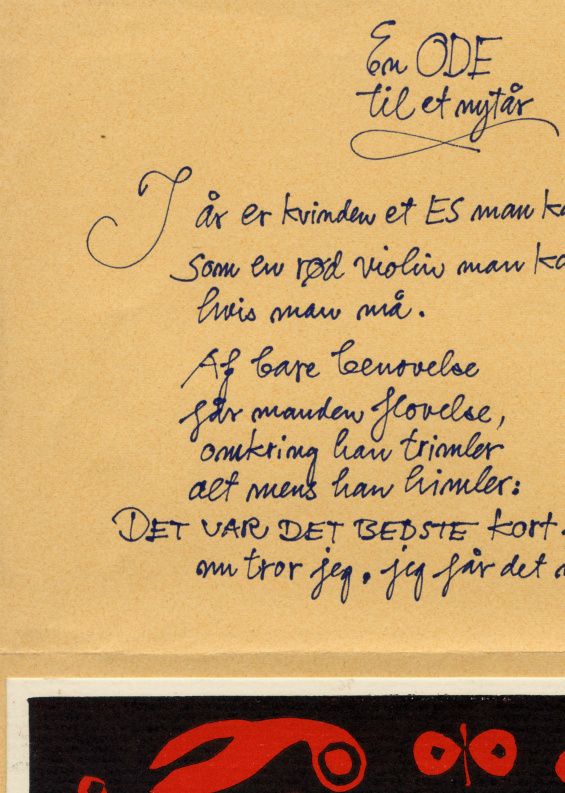 En ODE
til et nytår
I år er kvinden et ES man ka
som en rød violin man ka
hvis man må.
Af bare benovelse
får manden flovelse,
omkring han trimler
alt mens han himler:
DET VAR DET BEDSTE kort.
nu tror jeg, jeg får det